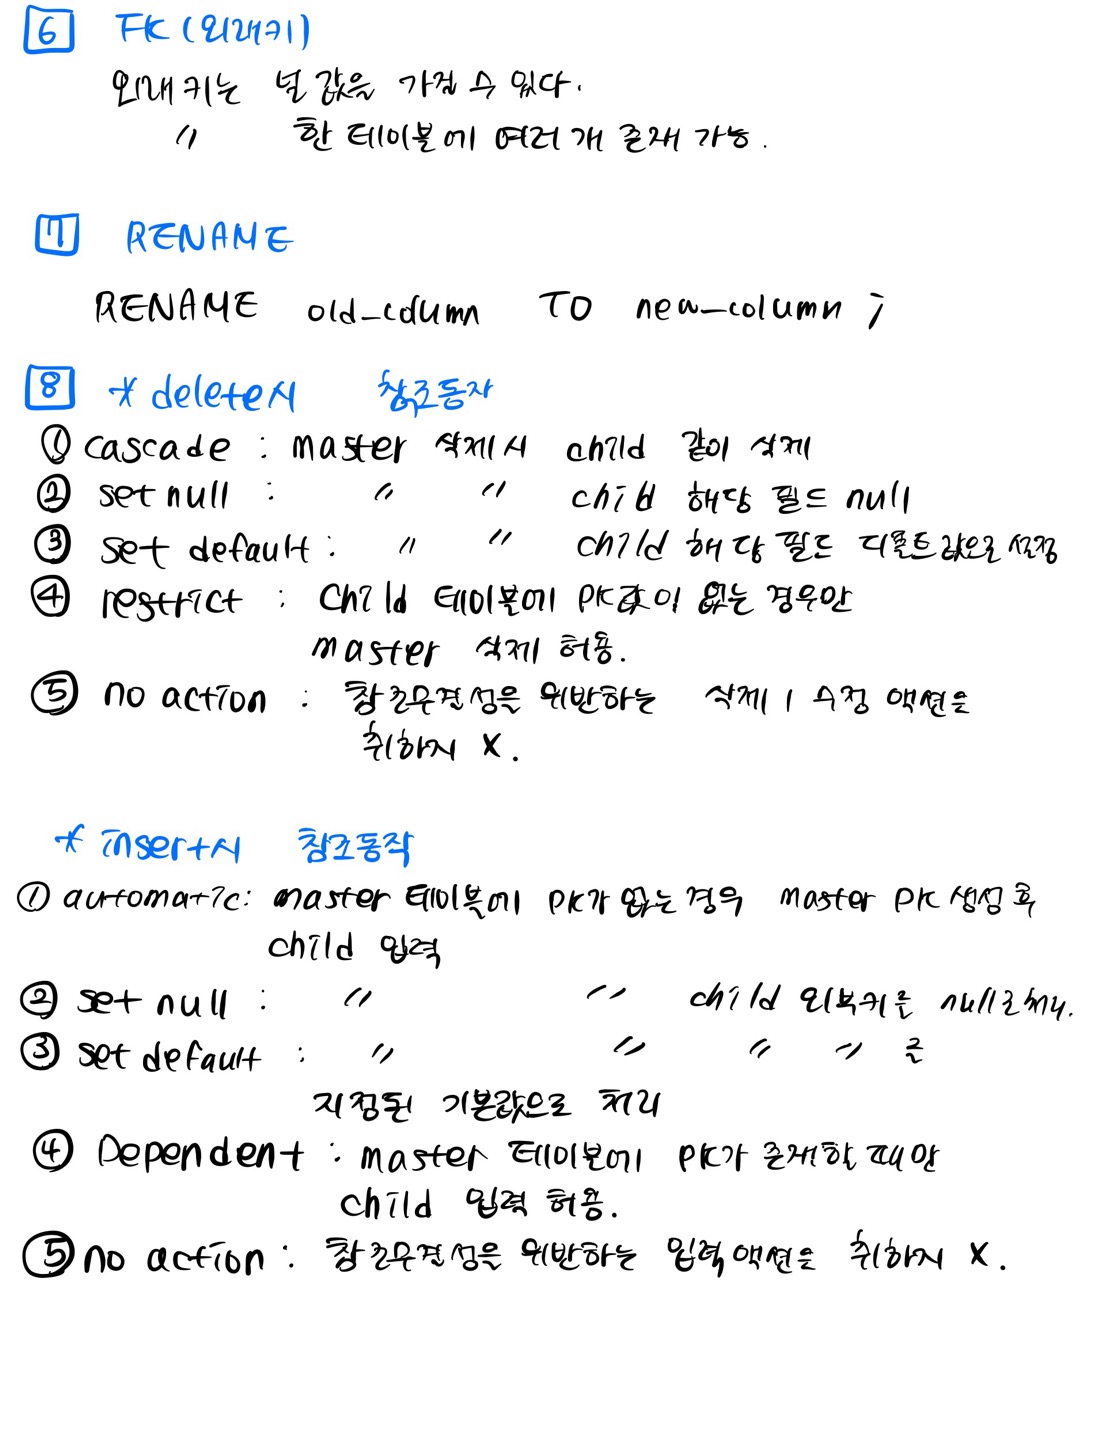 6 FK (외래키)
외래키는 널 값을 가질 수 있다.
〃 한 테이블에 여러 개 존재 가능.
7 RENAME
RENAME old_column TO new_column ;
8 * delete시 참조동작
① cascade : master 삭제시 child 같이 삭제
② set null : 〃 〃 child 해당 필드 null
③ set default : 〃 〃 child 해당 필드 디폴트값으로 설정
④ restrict : child 테이블에 PK값이 없는 경우만
master 삭제 허용.
⑤ no action : 참조무결성을 위반하는 삭제 / 수정 액션을
취하지 X.
* insert시 참조동작
① automatic: master 테이블에 PK가 없는 경우 master PK 생성 후
child 입력
② set null : 〃 〃 child 외부키를 null로 처리.
③ set default : 〃 〃 〃 〃 를
지정된 기본값으로 처리
④ Dependent : master 테이블에 PK가 존재할 때만
child 입력 허용.
⑤ no action : 참조무결성을 위반하는 입력 액션을 취하지 X.